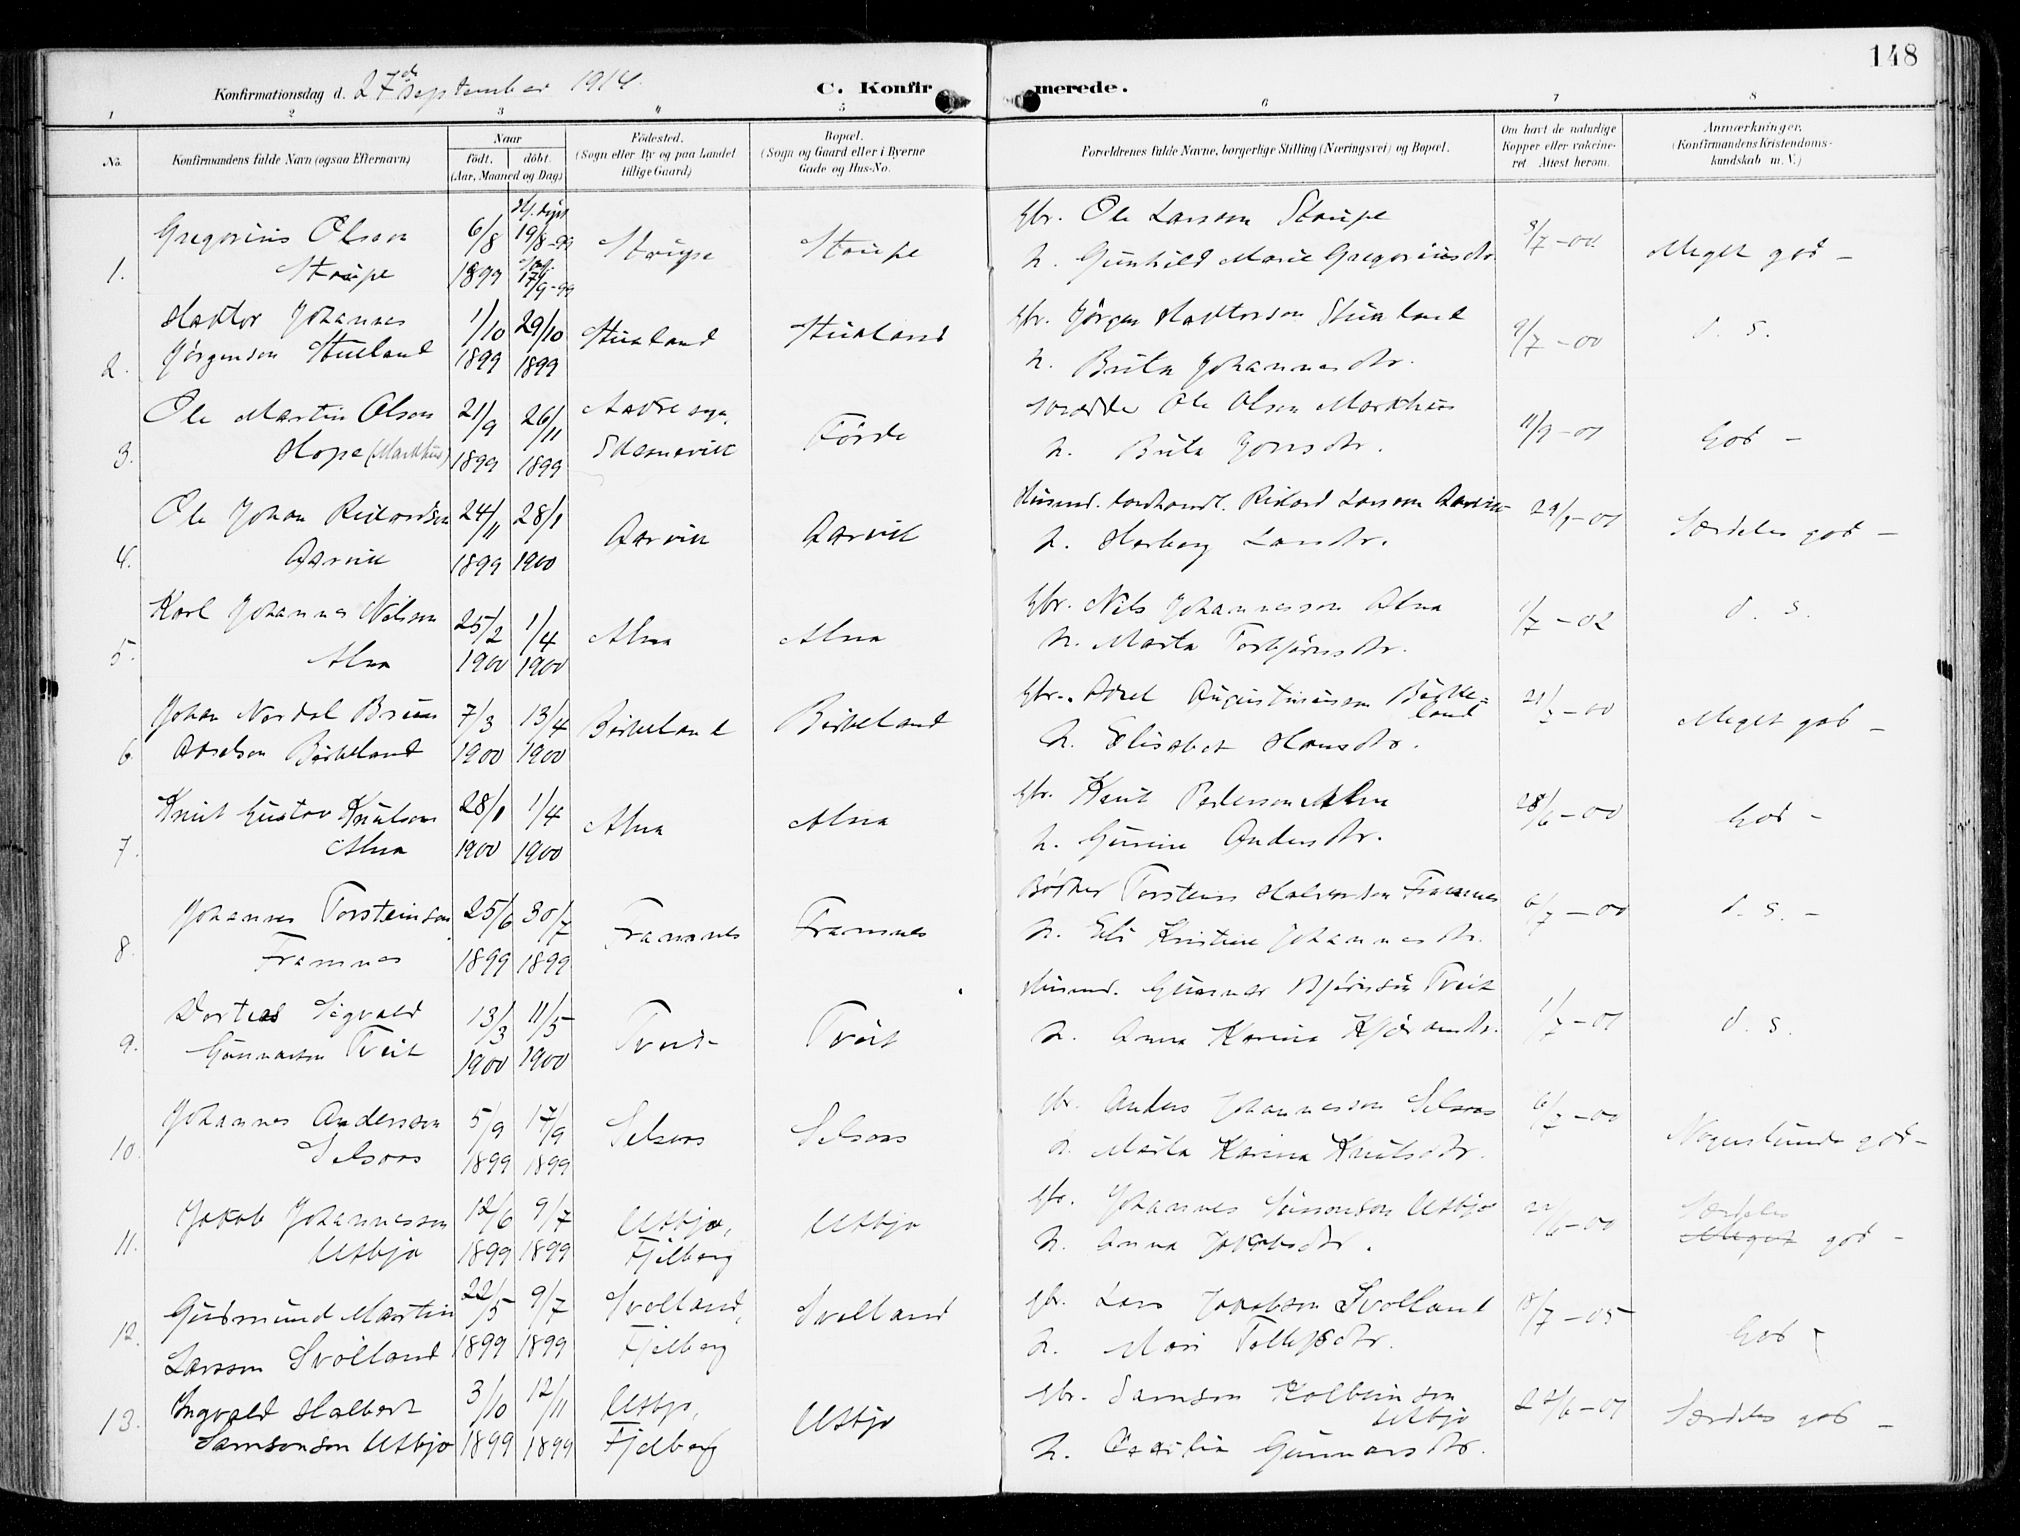 148
Konfirmationsdag d. 27de September 1914.
C. Konfirmerede.
1 2 3 4 5 6 7 8
No.
Konfirmandens fulde Navn (ogsaa Efternavn)
Naar
födt. döbt.
(Aar, Maaned og Dag)
Födested.
(Sogn eller By og paa Landet
tillige Gaard)
Bopæl.
(Sogn og Gaard eller i Byerne
Gade og Hus-No.
Forældrenes fulde Navne, borgerlige Stilling (Næringsvei) og Bopæl.
Om havt de naturlige
Kopper eller vakcine-
ret Attest herom.
Anmærkninger.
(Konfirmandens Kristendoms-
kundskab m. V.)
1. Gregorius Olson
Staupe
6/8 1899
19/8-99
17/9-99
Staupe
Staupe
Gbr. Ole Larsson Staupe
h. Gunhild Marie Gregoriusdtr
3/7-00
Meget god -
2. Haktor Johannes
Jørgenson Stualand
1/10 1899
29/10 1899
Stualand
Stualand
Gbr. Jørgen Haktorson Stualand
h. Brita Johannesdtr.
9/7-00
d. s.
3. Ole Martin Olson
Hope (Markhus)
21/9 1899
26/11 1899
Aakre sogn,
Skaanevik
Förde
Ole Olson Markhus
h. Brita Jonsdtr.
11/9-01
God -
4. Ole Johan Rikardson
Aarvik
24/11 1899
28/1 1900
Aarvik
Aarvik
Husmd. landhandl. Rikard Larsson Aarvik
h. Herborg Larsdtr.
29/9-01
Særdeles god -
5. Karl Johannes Nilson
Alna
25/2 1900
1/4 1900
Alna
Alna
Gbr. Nils Johannesson Alna
h. Marta Torbjörnsdtr.
1/7-02
d. s.
6. Johan Nordal Brun
Akselson Birkeland
7/3 1900
13/4 1900
Birkeland
Birkeland
Gbr. Aksel Augustinusson Birke-
land
h. Elisabet Hansdtr.
Meget god -
7. Knut Gustav Knutson
Alna
28/1 1900
1/4 1900
Alna
Alna
Gbr. Knut Pederson Alna
h. Gurine Andersdtr.
28/6-00
God -
8. Johannes Torsteinson
Framnes
25/6 1899
30/7 1899
Framnes
Framnes
Bödker Torstein Halvorson Framnes
h. Eli Kristine Johannesdtr.
6/7-00
d. s. -
9. Dorteas Sigvald
Gunnarson Tveit
13/3 1900
11/5 1900
Tveit
Tveit
Husmd. Gunnar Bjørnson Tveit
h. Anna Karina
1/7-01
d. s.
10. Johannes Anderson
Selsaas
5/9 1899
17/9 1899
Selsaas
Selsaas
Gbr. Anders Johannesson Selsaas
h. Marta Karina Knutsdtr.
6/7-00
Nogenlunde god -
11. Jakob Johannesson
Utbjo
12/6 1899
9/7 1899
Utbjo,
Fjelberg
Utbjo
Gbr. Johannes Simonson Utbjo
h. Anna Jakobsdtr.
Særdeles
Meget god -
12. Gudmund Martin
Larsson Svolland
22/5 1899
9/7 1899
Svolland,
Fjelberg
Svolland
Gbr. Lars Jakobson Svolland
h. Mari Tollefsdtr.
18/7-05
God
13. Ingvald Halbert
Samsonson Utbjo
3/10 1899
12/11 1899
Utbjo,
Fjelberg
Utbjo
Gbr. Samson Kolbeinson
Utbjo
h. Cecilia Gunnarsdtr.
Særdeles god -